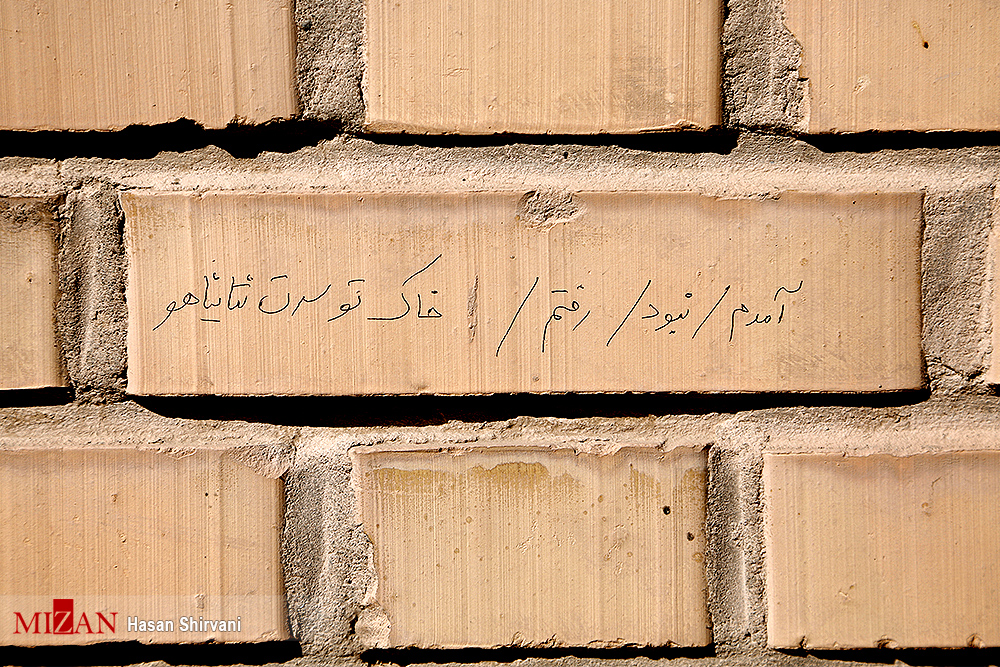 آمدم / نبود / رفتم / خاک تو سرت نتانیاهو
MIZAN Hasan Shirvani